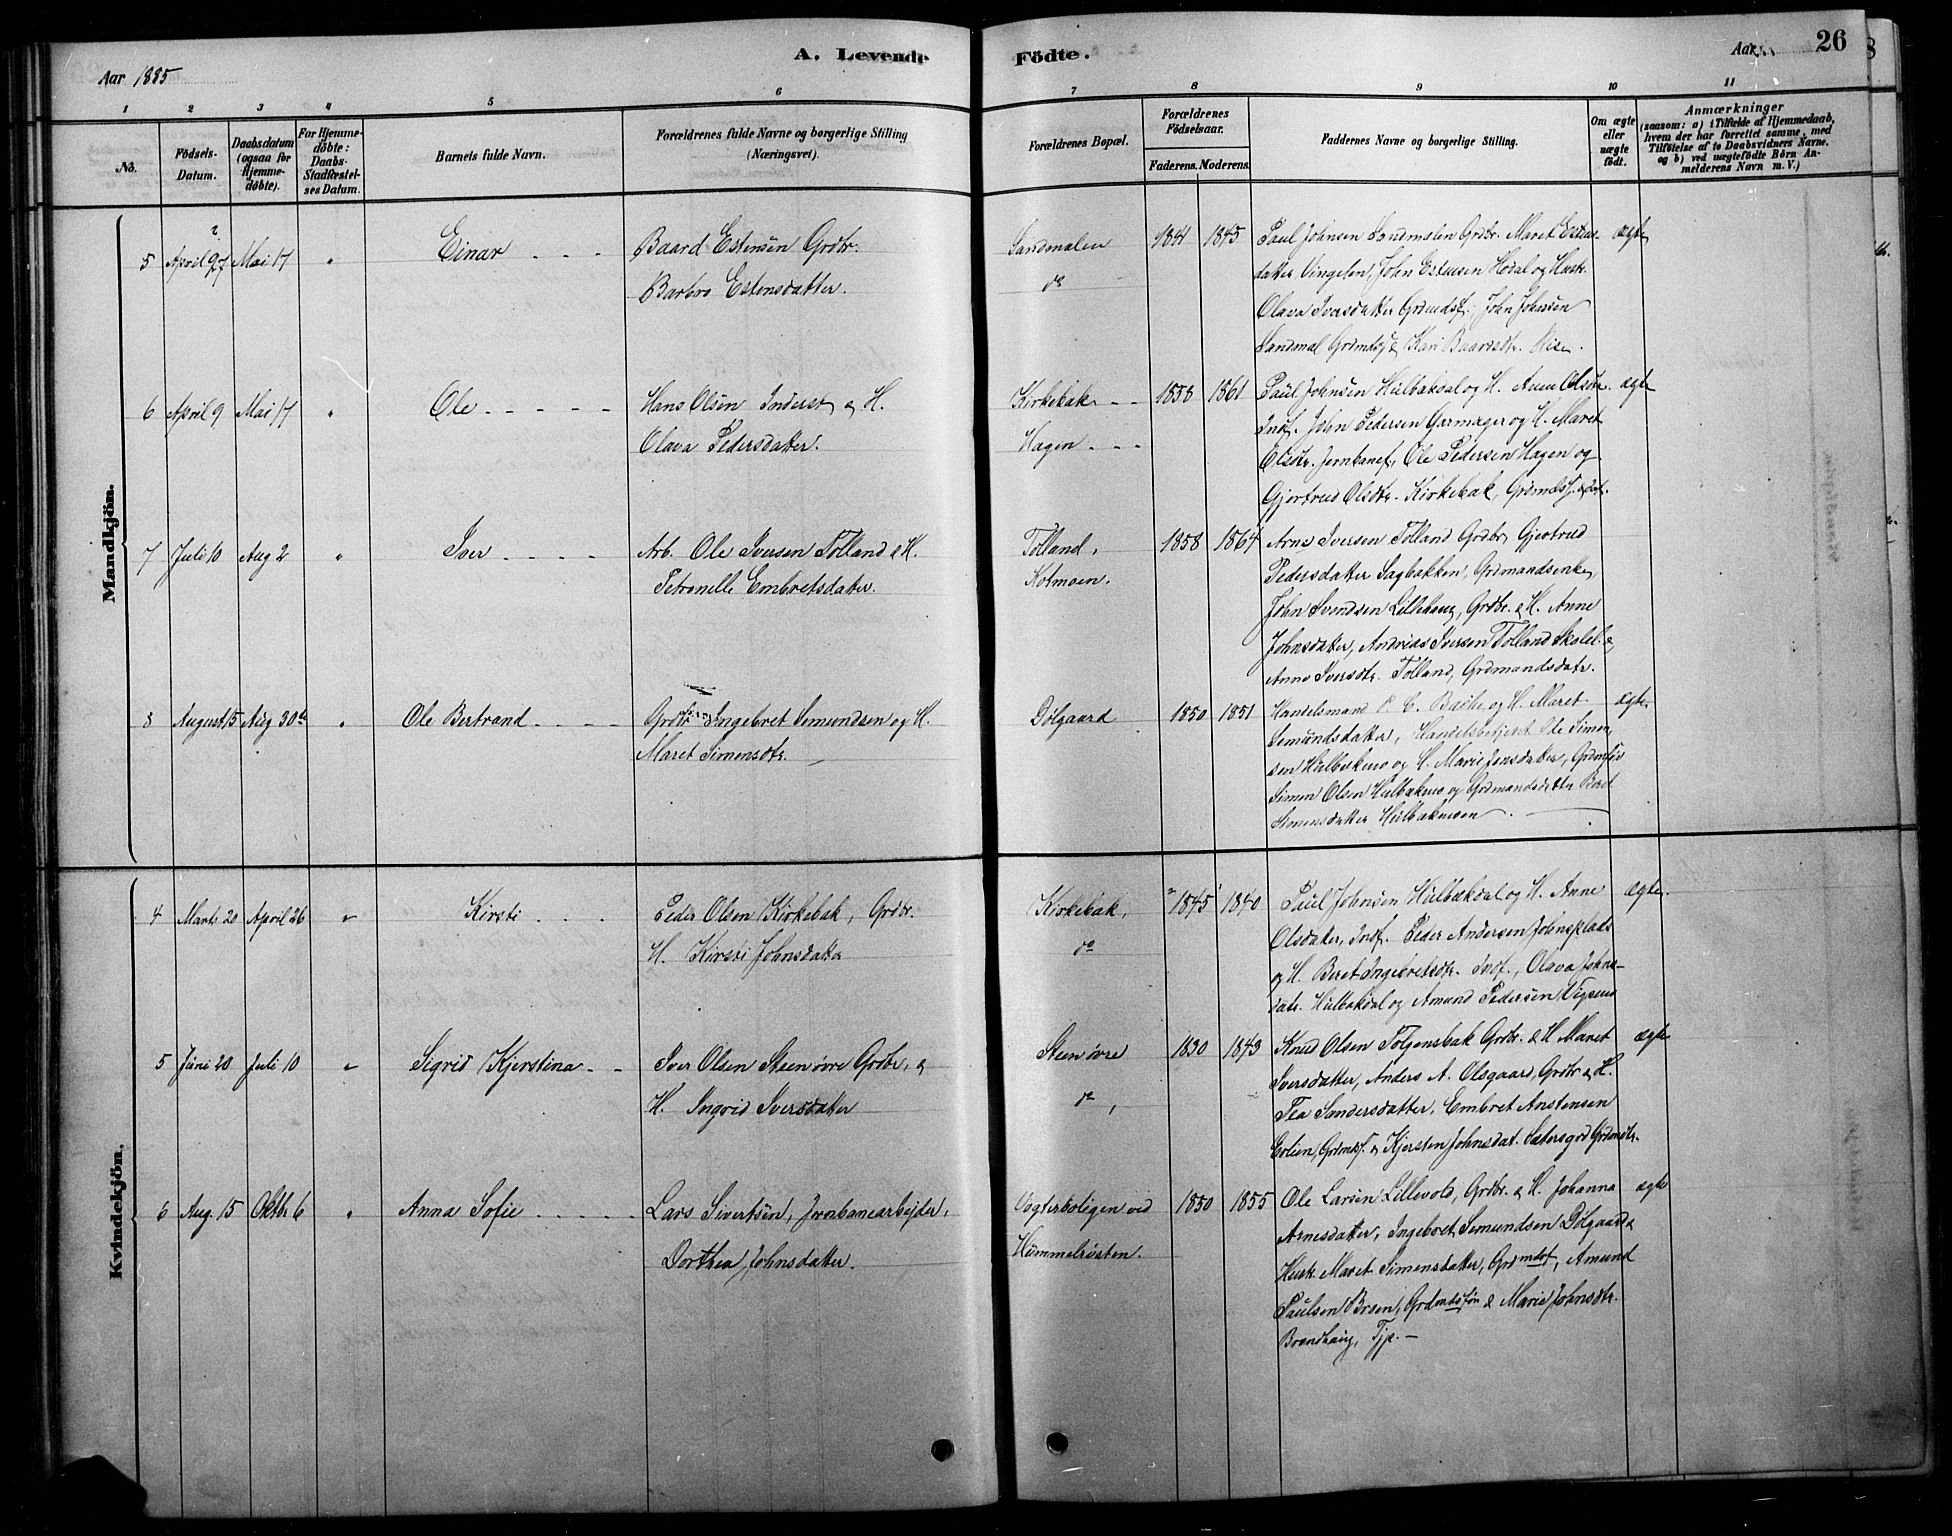 A. Levende Fødte.
Aar 1885
Aar
26
1 2 3 4 5 6 7 8 9 10 11
No.
Födsels-Datum.
Daabsdatum (ogsaa for Hjemme-döbte).
For Hjemme-döbte: Daabs-Stadfæstel-ses Datum.
Barnets fulde Navn.
Forældrenes fulde Navne og borgerlige Stilling (Næringsvei).
Forældrenes Bopæl.
Forældrenes Födselsaar.
Faderens. Moderens.
Faddernes Navne og borgerlige Stilling.
Om ægte eller uægte födt.
Anmærkninger
(saasom: a) i Tilfælde af Hjemmedaab, hvem der har forrettet samme, med Tilföielse af to Daabsvidners Navne. og b) ved uægtefödte Börn An-melderens Navn m. V.)
Mandkjön.
5 April Mai 17 " Einar
Baard Estensen Grdbr.
Barbro Estensdatter.
Sandmalen
do
1841 1845
Paul Johnsen Sandmalen Grdbr. Maret Estens-
datter Vingelen, John Estensen Hodal og Hustr.
Olava Iversdatter Grdmdsf., John Johnsen
Sandmal Grdmds & Kari Baardsdtr.
ægte
6 April 9 Mai 17 " Ole
Hans Olsen Inderst & H.
Olava Pedersdatter.
Kirkebak
Hagen
1858 1861
Paul Johnsen Hulbækdal og H. Anne Olsdtr.
Indf. John Pedersen Garmager og H. Maret
Olsdtr. Jernbanef, Ole Pedersen Hagen og
Gjertrud Olsdtr. Kirkebak, Grdmdsf.
ægte
7 Juli 10 Aug 2 " Iver
Arb. Ole Iversen Tolland & H.
Petronelle Embretsdatter.
Tolland,
Kolmoen.
1858 1864
Arne Iversen Tolland Grdbr, Gjertrud
Pedersdatter Sagbakken, Grdmandsenke,
John Svendsen Lillehaug, Grdbr. & H. Anne
Johnsdatter, Andreas Iversen Tolland Skolel. &
Anne Iversdtr. Tolland, Grdmandsdatr.
8 August 15 Aug 30te " Ole Bertrand
Grdbr Ingebret Simundsen og H.
Maret Simensdtr.
Dølgaard
1850 1851
Handelsmand P. C. Bache og H. Maret
Semundsdatter, Handelsbetjent Ole Simen-
sen Hulbækmo og H. Marie Jensdatter,
Simen Olsen Hulbækmo og Grdmandsdatter Beret
Simensdatter Hulbækmoen
ægte.
Kvindekjön.
4 Marts 20 April 26 " Kirsti
Peder Olsen Kirkebak, Grdbr.
H. Kirsti Johnsdatter
Kirkebak,
do
1845 1840
Paul Johnsen Hulbækdal og H. Anne
Olsdatter, Indf. Peder Andersen Johnsplads
og H. Beret Ingebretsdtr. Indf., Olava Johns-
datr. Hulbækdal og Amund Pedersen
ægte.
5 Juni 20 Juli 10 " Sigrid Kjerstina
Iver Olsen Steen øvre Grdbr. &
H. Ingrid Iversdatter
Steen øvre
do,
1830 1843
Knud Olsen Tolgensbak Grdbr. & H Maret
Iversdatter, Anders A. Olsgaard, Grdbr & H.
Tea Sandersdatter, Embret Anstensen
Eolien, Grdmdsf. & Kjersten Johnsdat. Sætersgrd Grdmdtr.
ægte
6 Aug. 15 Oktbr 6 " Anna Sofie
Lars Sivertsen, Jernbanearbejder,
Dorthea Johnsdatter.
Vogterboligen ved
Hummelvosten.
1850 1855
Ole Larsen Lillevold, Grdbr. & H. Johanna
Arnesdatter, Ingebret Semundsen Dølgaard &
Hustr. Maret Simensdatter, Grdmdsf, Amund
Paulsen Broen, Grdmdssøn & Marie Johnsdtr.
Brandhaug, Tjp. —
ægte